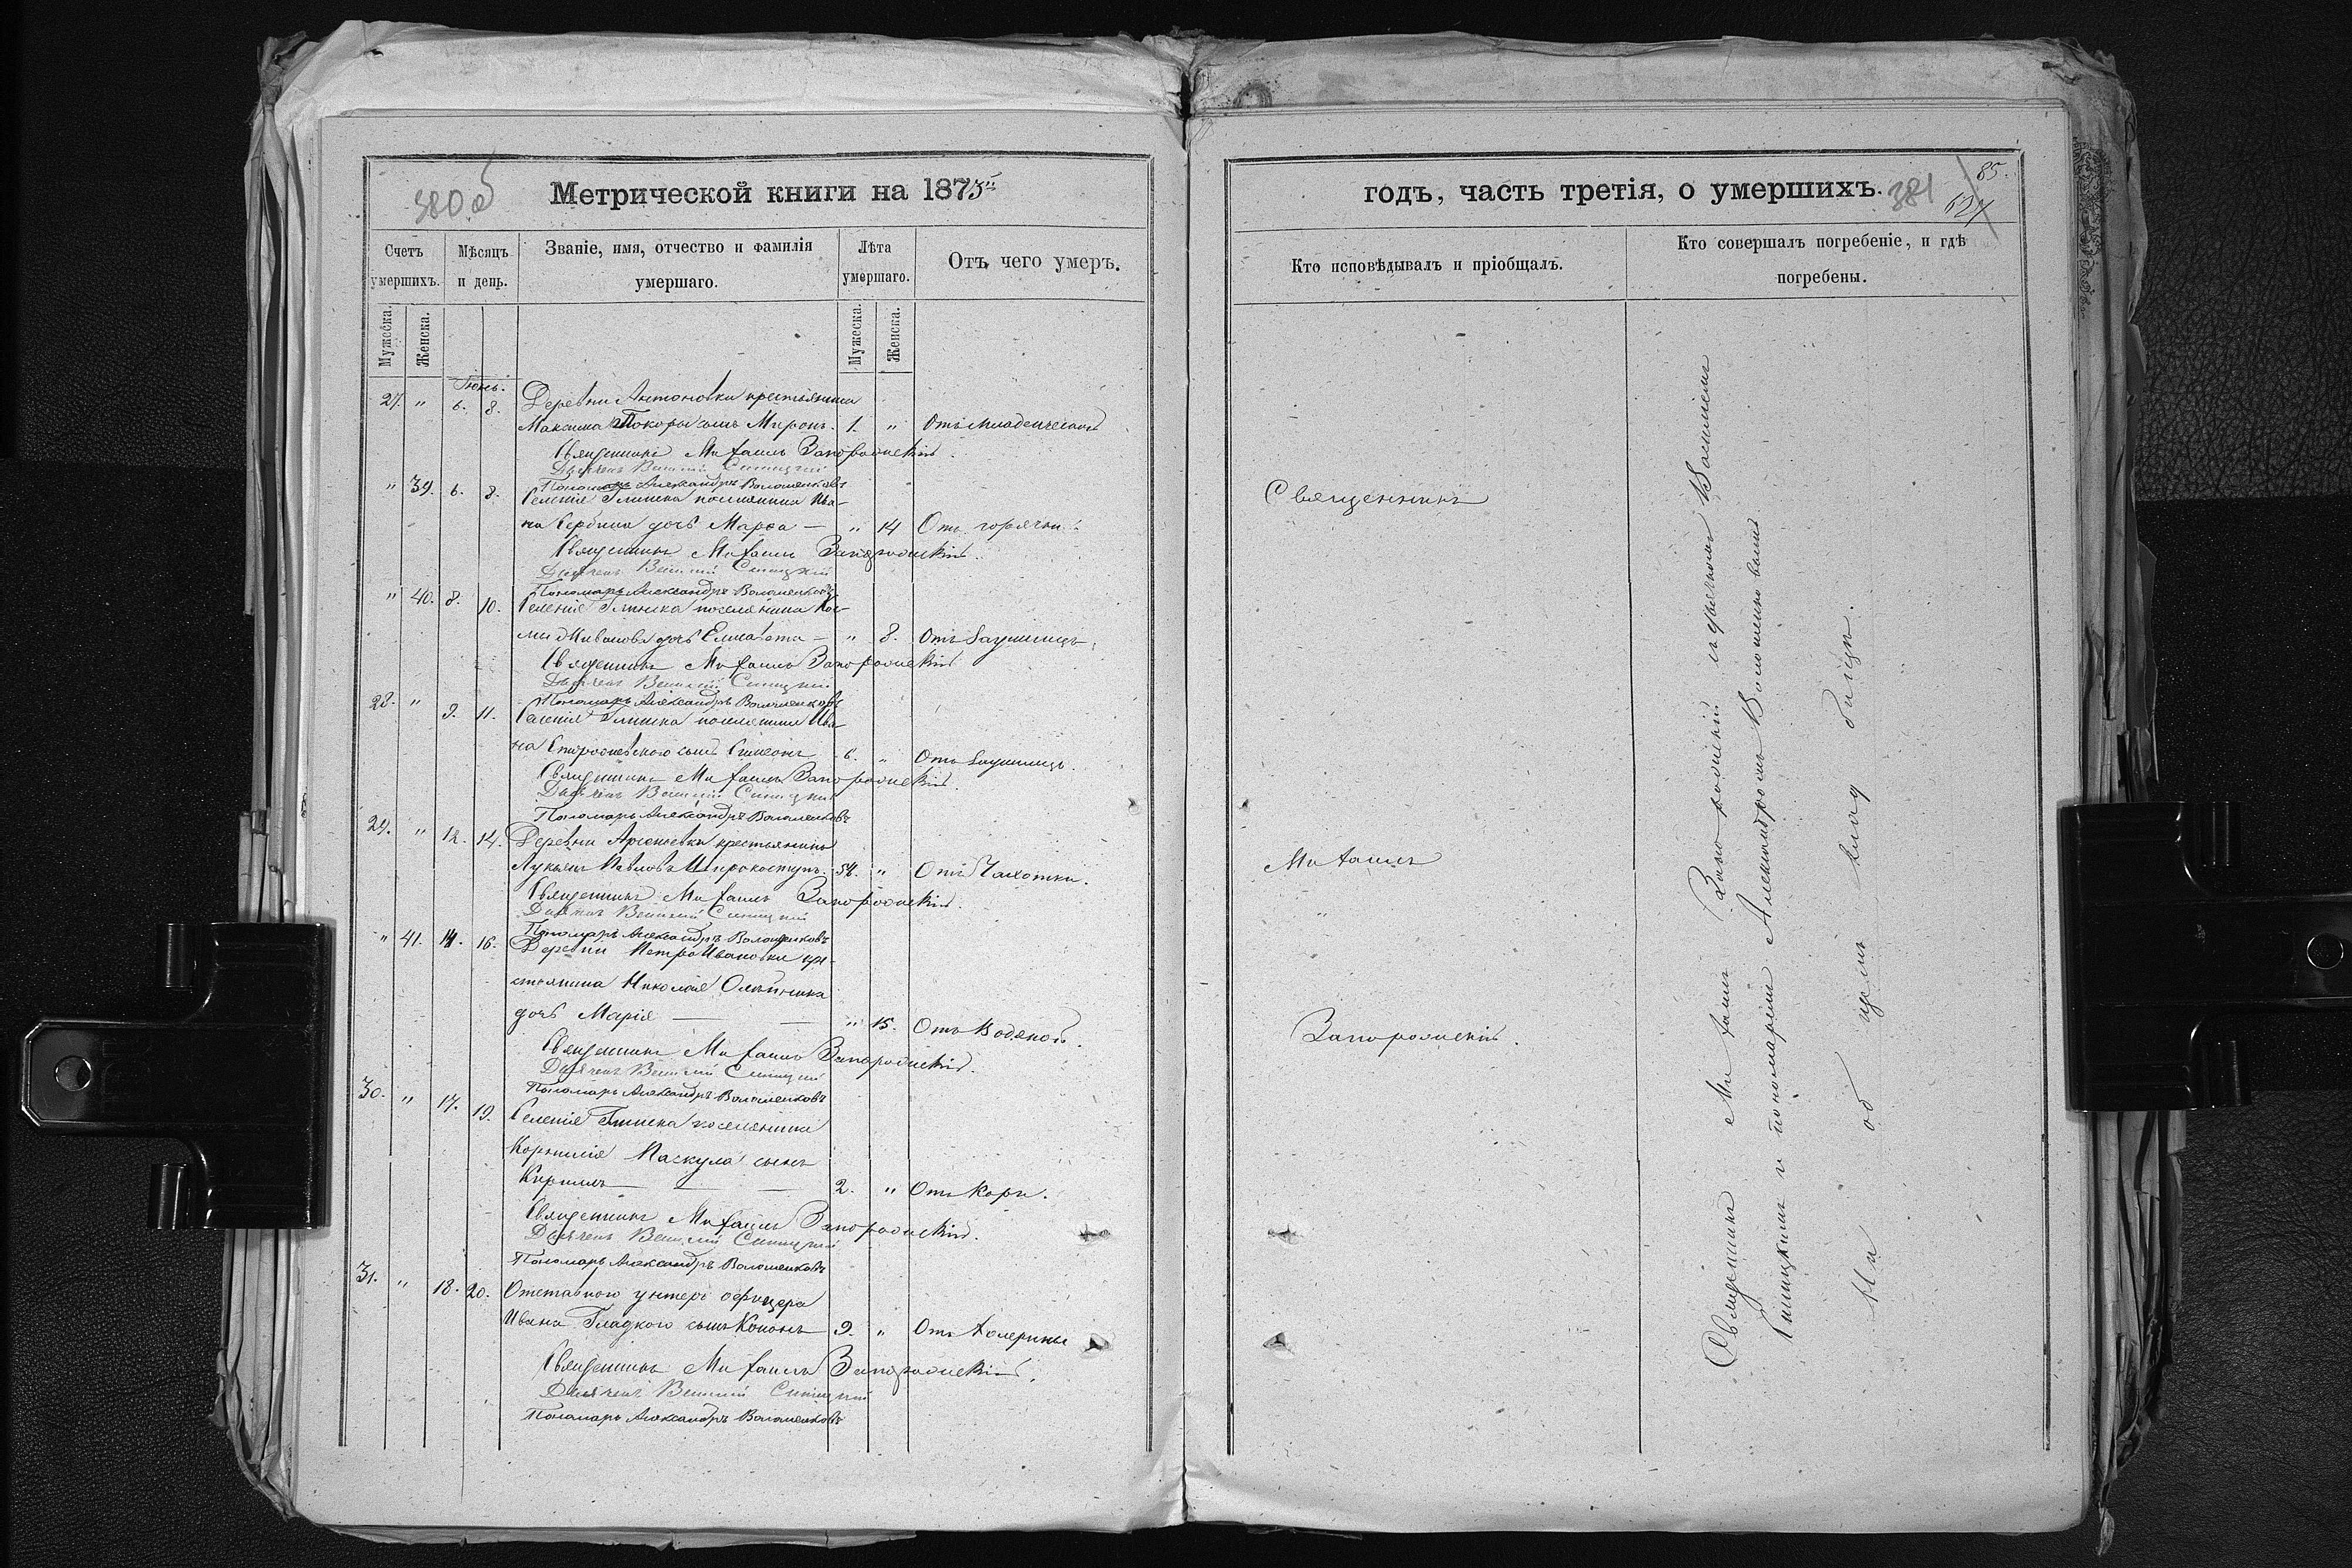 380 об
Метрической книги на 1875й
Счетъ умершихъ.
Мѣсяцъ и день.
Званіе, имя, отчество и фамилія умершаго.
Лѣта умершаго.
Отъ чего умеръ.
Мужеска.
Женска.
Мужеска.
Женска.
Іюнь.
27. " 6. 8. Деревни Антоновки крестьянина
Максима Покоры сынъ Миронъ. 1. " Отъ младенческой
Священникъ Михаилъ Запорожскій.
Дьячекъ Василій Синицкій
Пономарь Александръ Волошенковъ
" 39. 6. 8. Селенія Глинска поселянина Ива-
на Сербина дочь Марѳа — " 14 Отъ горячки.
Священникъ Михаилъ Запорожскій.
Дьячекъ Василій Синицкій
Пономарь Александръ Волошенковъ
" 40. 8. 10. Селенія Глинска поселянина Кос-
мы Иванова дочь Елисавета — " 8. Отъ Заушницъ.
Священникъ Михаилъ Запорожскій
Дьячекъ Василій Синицкій
Пономарь Александръ Волошенковъ
28. " 9. 11. Селенія Глинска поселянина Ива-
на сынъ Симеонъ 6. " Отъ Заушницъ.
Священникъ Михаилъ Запорожскій.
Дьячекъ Василій Синицкій
Пономарь Александръ Волошенковъ
29. " 12. 14. Деревни Арсеніевки крестьянинъ
Лукьянъ Павловъ Широкоступъ. 54. " Отъ Чахотки.
Священникъ Михаилъ Запорожскій.
Дьячекъ Василій Синицкій
Пономарь Александръ Волошенковъ
" 41. 14. 16. Деревни ПетроИвановки кре-
стьянина Николая Олейника
дочь Марія — — " 15. Отъ Водяной.
Священникъ Михаилъ Запорожскій.
Дьячекъ Василій Синицкій
Пономарь Александръ Волошенковъ
30. " 17. 19. Селенія Глинска поселянина
Корнилія Паскула сынъ
Кириллъ — — — 2. " Отъ Кори.
Священникъ Михаилъ Запорожскій.
Дьячекъ Василій Синицкій
Пономарь Александръ Волошенковъ
31. " 18. 20. Отставного унтеръ офицера
Ивана Гладкого сынъ Кононъ 9. " Отъ Холерины
Священникъ Михаилъ Запорожскій.
Дьячекъ Василій Синицкій
Пономарь Александръ Волошенковъ
годъ, часть третія, о умершихъ.
381
85.
Кто исповѣдывалъ и пріобщалъ.
Кто совершалъ погребеніе, и гдѣ погребены.
Священникъ
Михаилъ
Запорожскій.
Священникъ Михаилъ Запорожскій съ дьячкомъ Василіемъ
Синицкимъ и пономаремъ Александромъ Волошенковымъ
На общемъ кладбищѣ.